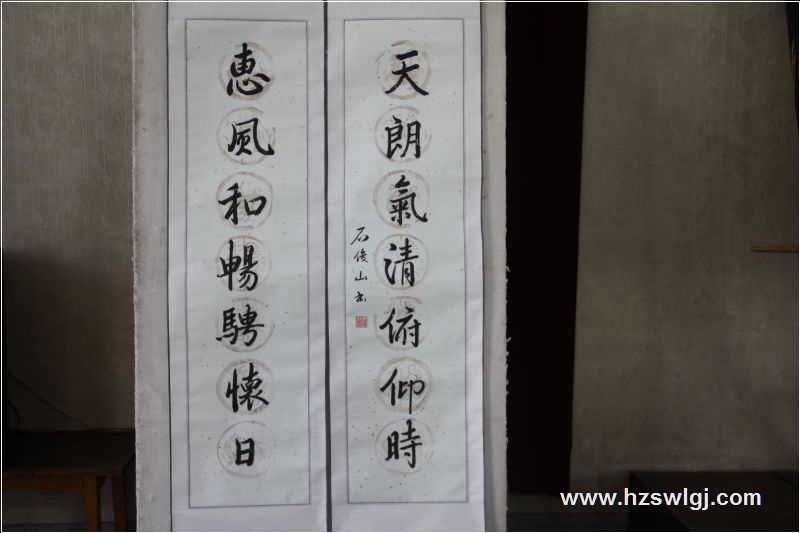 天朗氣清俯仰時
石俊山书
惠風和暢騁懷日
www.hzswlgj.com